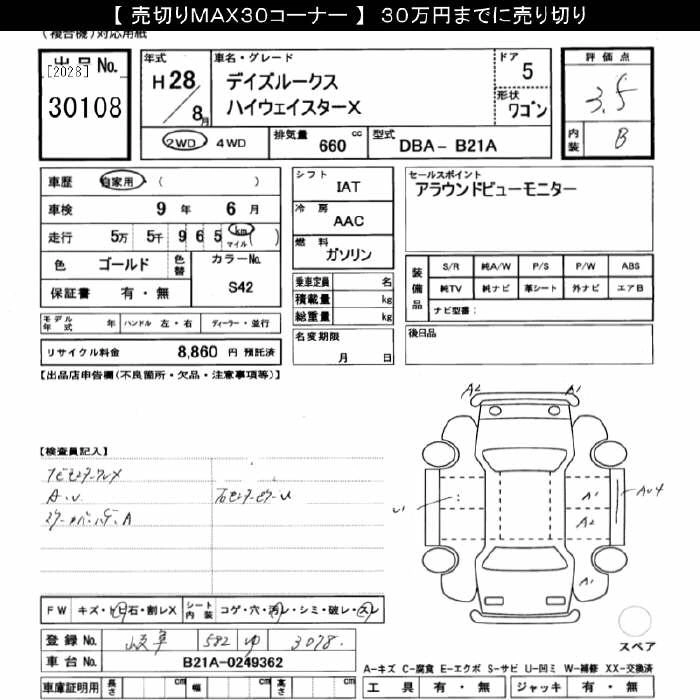 【 売切りMAX30コーナー 】 30万円までに売り切り
(複合機)対応用紙
出品No.
[2028]
30108
年式
H28/8月
車名・グレード
デイズルークス
ハイウェイスターX
ドア 5
形状 ワゴン
評価点
3.5
内装 B
2WD 4WD
排気量 660 cc
型式 DBA- B21A
車歴 自家用 ( )
車検 9 年 6 月
走行 5万 5千 9 6 5 km マイル ( )
色 ゴールド 色替
カラーNo. S42
保証書 有・無
モデル年式 年 ハンドル 左・右 ディーラー・並行
リサイクル料金 8,860 円 預託済
シフト IAT
冷房 AAC
燃料 ガソリン
乗車定員 名
積載量 kg
総重量 kg
名変期限
月 日
セールスポイント
アラウンドビューモニター
装備品
S/R 純A/W P/S P/W ABS
純TV 純ナビ 革シート 外ナビ エアB
ナビ型番:
後日品
【出品店申告欄(不良箇所・欠品・注意事項等)】
【検査員記入】
A.U
A2 A1
U1 A1 AU4
A2
A1
FW キズ・トビ石・割レX シート内装 コゲ・穴・汚レ・シミ・破レ・スレ
登録No. 岐阜 582 ゆ 3078.
車台No. B21A-0249362
車庫証明用 長さ cm 幅 cm 高さ cm
スペア
A-キズ C-腐食 E-エクボ S-サビ U-凹ミ W-補修 XX-交換済
工具 有・無 ジャッキ 有・無